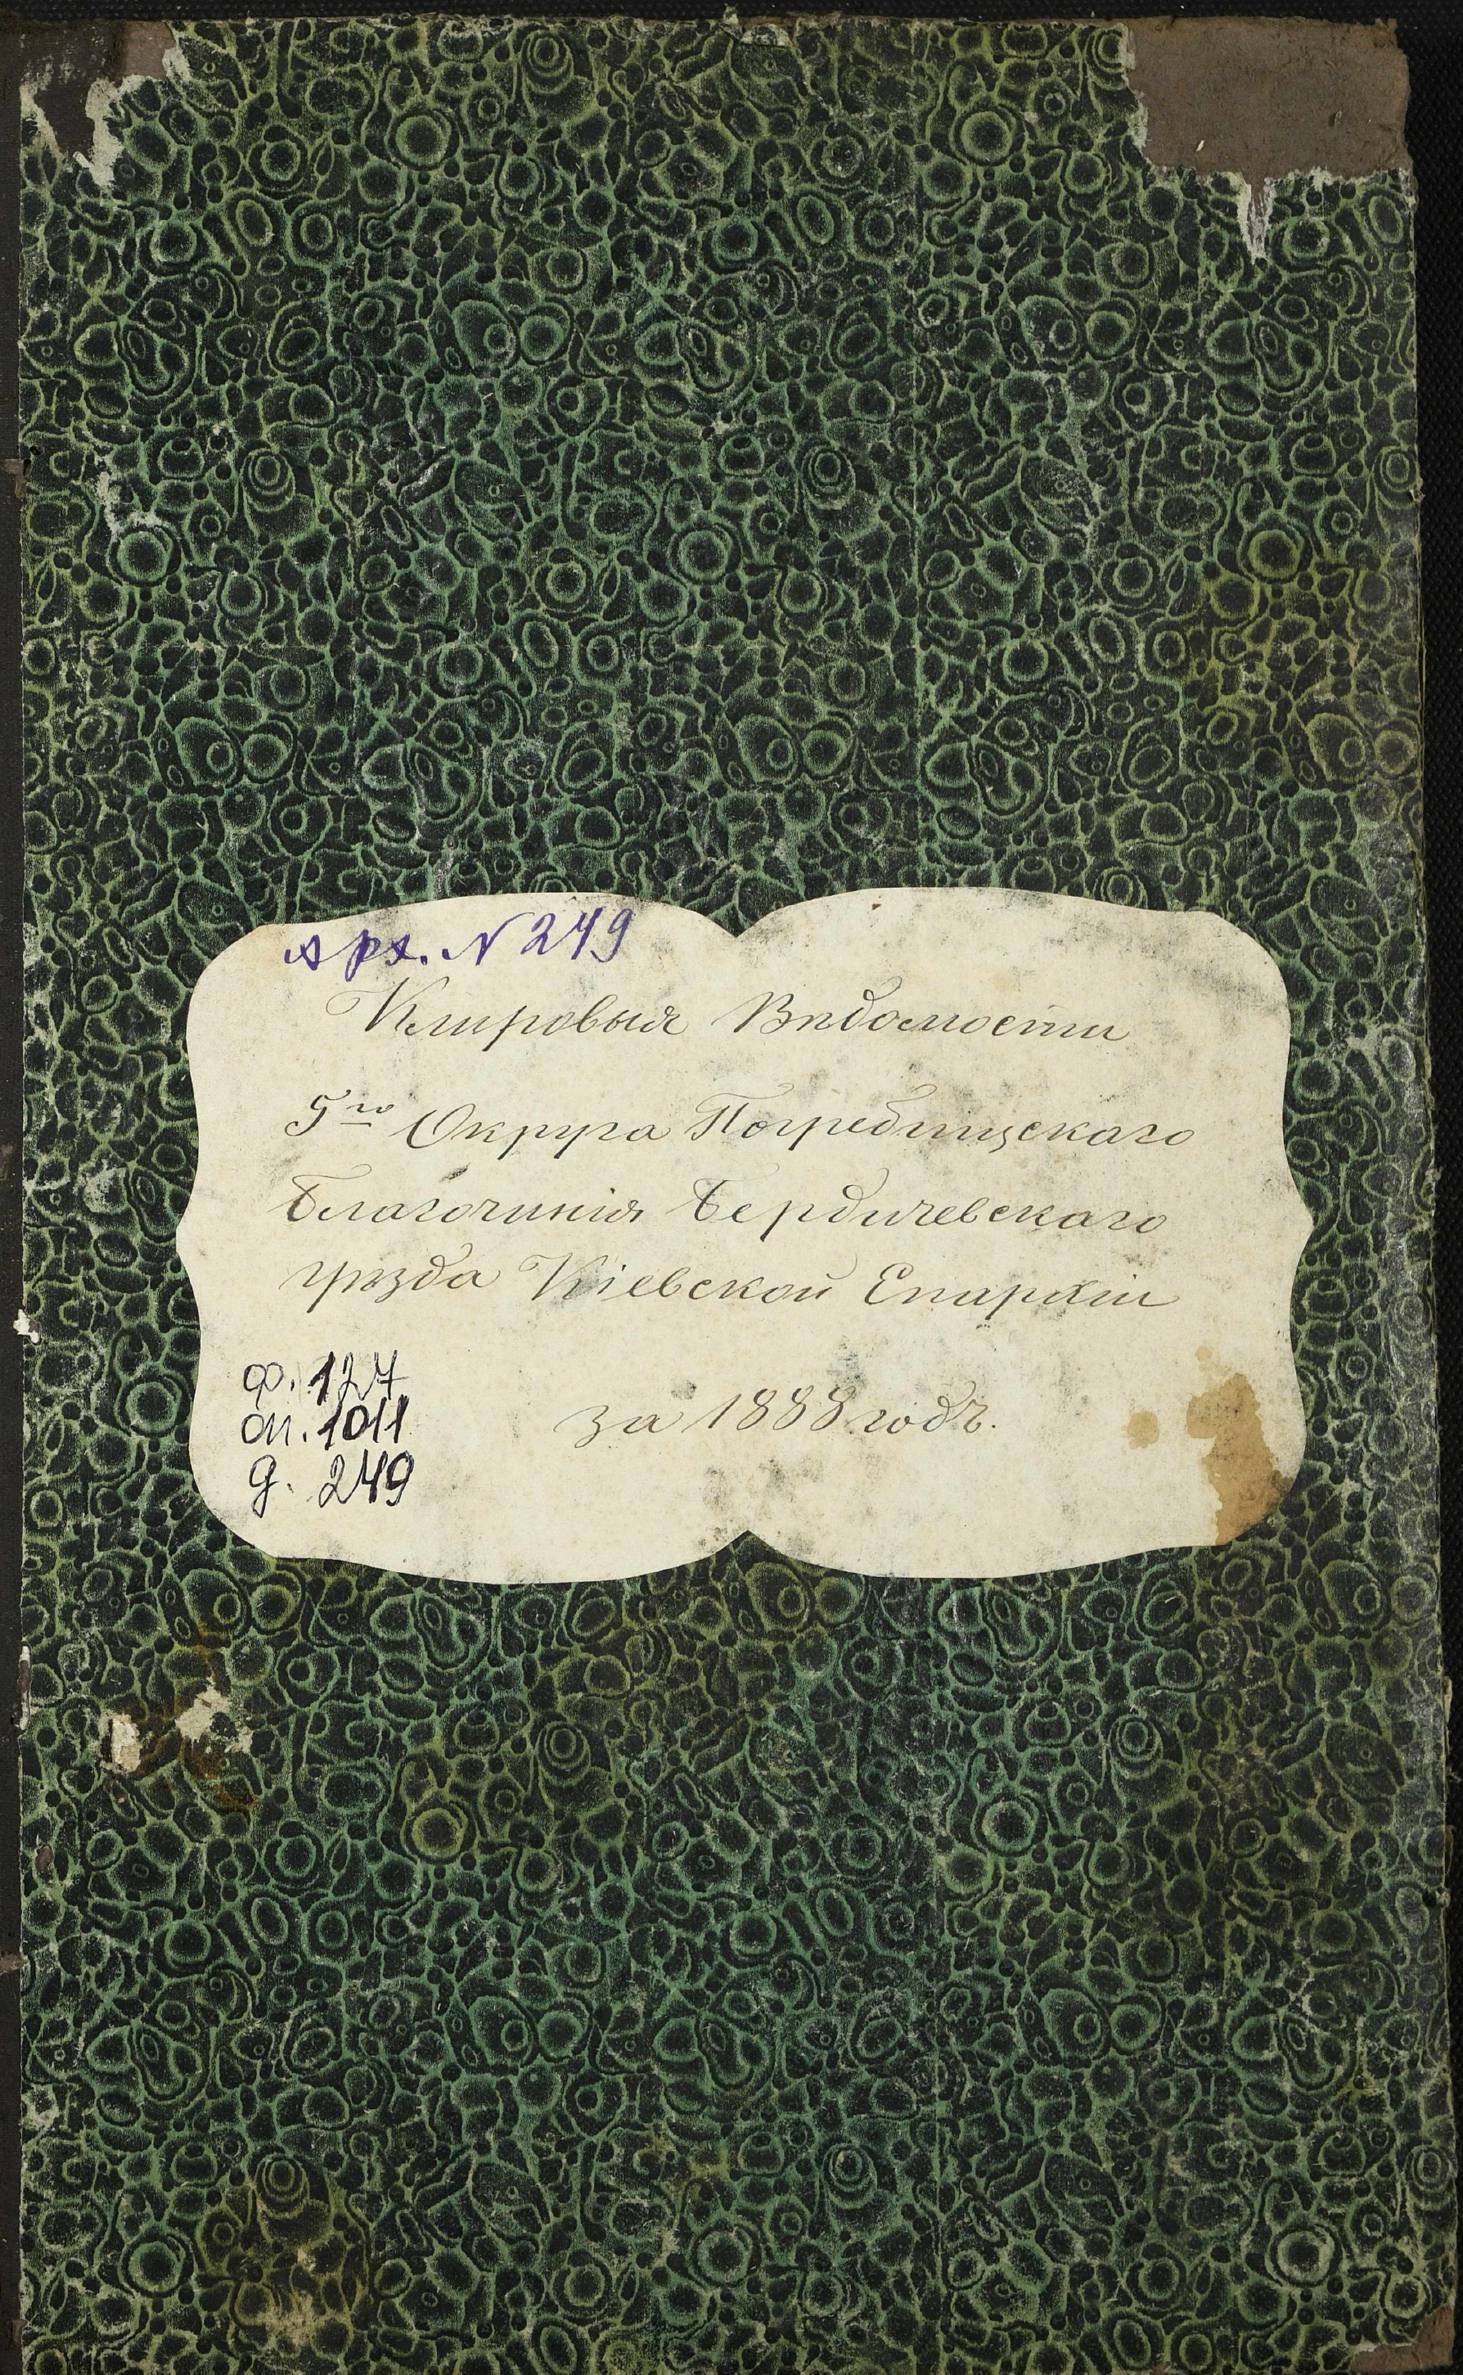 Арх. N 249
Клировыя Вѣдомости
5го Округа Погребищскаго
Благочинія Бердичевскаго
уѣзда Кіевской Епархіи
за 1888 годъ.
ф. 127
оп. 1011
д. 249